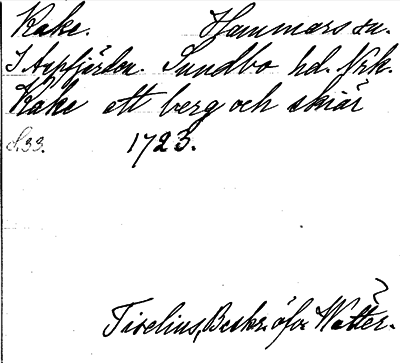 Kake. Hammars sn.
I Aspfjärden. Sundbo hd. Nrk.
Kake ett berg och skiär
s. 33. 1723.
Tiselius, Beskr. öfver Wätter.